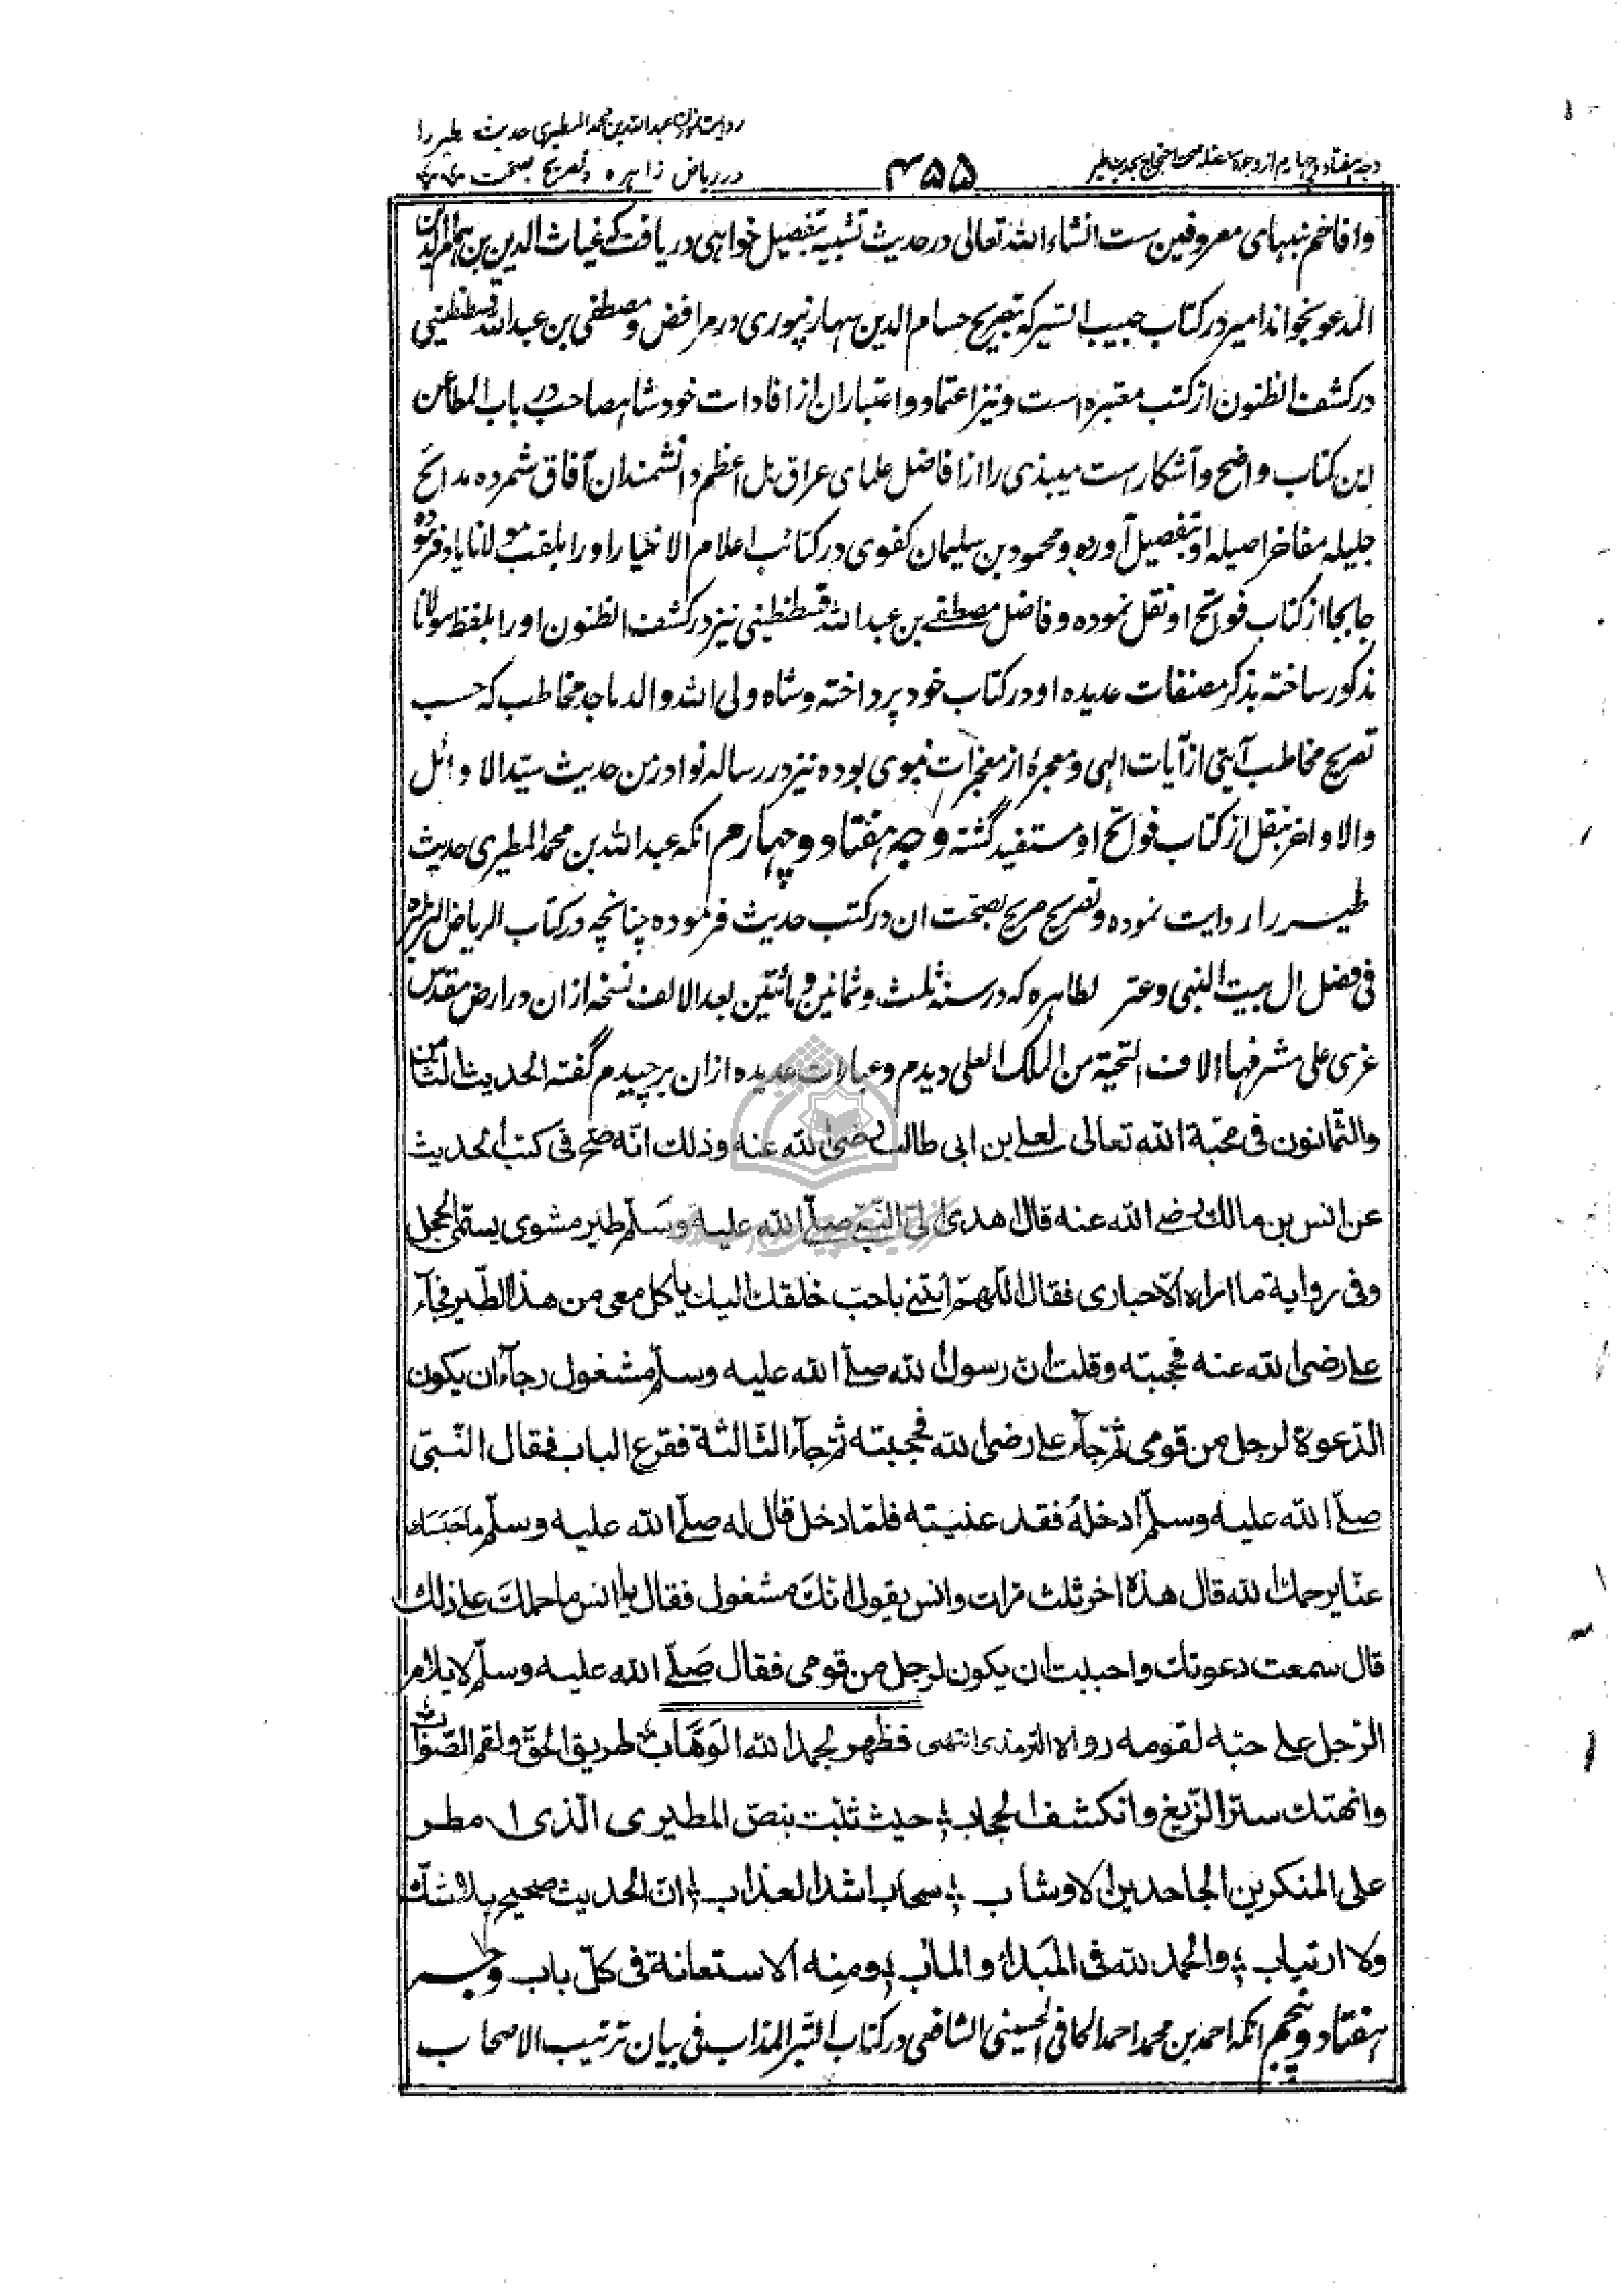 وجه هفتاد و چهارم از وجوه
۴۵۵
روایت نمودن عبدالله بن محمد المطیری حدیث طیر را
در ریاض زاهره و تصریح بصحت
وافاخم نبهای معروفین ست انشاء الله تعالی در حدیث تشبیه بتفصیل خواهی دریافت که غیاث الدین بن همام الدین
المدعو بخواندامیر در کتاب حبیب السیر که بتصریح حسام الدین سهارنپوری در مرافض و مصطفی بن عبدالله قسطنطینی
در کشف الظنون از کتب معتبره است و نیز اعتماد و اعتبار ان از افادات خود شاهصاحب در باب المطاعن
این کتاب واضح و آشکارست میبذی را از افاضل علمای عراق بل اعظم دانشمندان آفاق شمرده مدائح
جلیله مفاخر اصیله او بتفصیل آورده و محمود بن سلیمان کفوی در کتائب اعلام الاخیار او را بلقب مولانا یاد فرموده
جابجا از کتاب فواتح او نقل نموده و فاضل مصطفے بن عبدالله قسطنطینی نیز در کشف الظنون او را بلفظ مولانا
مذکور ساخته بذکر مصنفات عدیده او در کتاب خود پرداخته و شاه ولی الله والد ماجد مخاطب که حسب
تصریح مخاطب آیتی از آیات الهی و معجزهٔ از معجزات نبوی بوده نیز در رساله نوادر من حدیث سیّد الاوائل
والاواخر بنقل از کتاب فواتح او مستفید گشته وجه هفتاد و چهارم انکه عبدالله بن محمد المطیری حدیث
طیر را روایت نموده و تصریح صریح بصحت ان در کتب حدیث فرموده چنانچه در کتاب الریاض الزاهره
فی فضل ال بیت النبی وعتر لطاهره که در سنه ثلث وثمانین ومائتین بعد الالف نسخه از ان در ارض مقدّس
غری علی مشرفها الاف التحیة من الملک العلی دیدم و عبارات عدیده ازان برچیدم گفته الحدیث الثامن
والثمانون فی محبّة الله تعالی لعلے بن ابی طالب رضی الله عنه وذلك انّه صحّ فی کتب الحدیث
عن انس بن مالك رضے الله عنه قال اهدی الی النبّی صلّے الله علیه وسَلّم طیر مشوی یسمّی الحجل
وفی روایة ما اراه الّا حباری فقال اللّهمّ أتنے باحبّ خلقك الیك یاکل معی من هذا الطّیر فجآء
علے رضی الله عنه فحجبته وقلت انّ رسول الله صلّے الله علیه وسلّم مشغول رجآء ان یکون
الدّعوة لرجل من قومی ثمّ جآء علے رضی الله فحجبته ثمّ جآء الثّالثة فقرع الباب فقال النّبیّ
صلّے الله علیه وسلّم ادخلهُ فقد عنیته فلمّا دخل قال له صلّے الله علیه وسلّم ما حَبَسَك
عنّا یرحمك الله قال هذه اخر ثلث مرّات وانس یقول انّكَ مشغول فقال یا انس ما حملكَ علے ذلك
قال سمعت دعوتك واحببت ان یکون لرجل من قومی فقال صَلّے الله علیه وسلّم لا یلام
الرّجل علے حبّه لقومه رواه الترمذی انتهی فظهر بحمد الله الوَهّاب طریق الحقّ ولقم الصّواب
وانهتك ستر الزّیغ وانکشف الحجاب حیث ثبت بنصّ المطیری الّذی امطر
علی المنکرین الجاحدین الاوشاب سحاب اشد العذاب انّ الحدیث صحیح بلا شكّ
ولا ارتیاب والحمد لله فی المَبدأ والماٰب ومنه الاستعانة فی کلّ باب وجه
هفتاد و پنجم انکه احمد بن محمد احمد الحافی الحسینی الشافعی در کتاب التبر المذاب فی بیان ترتیب الاصحاب